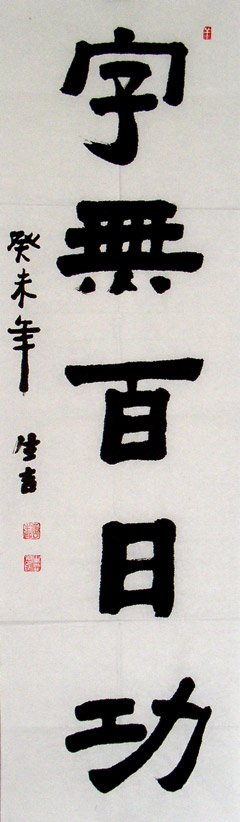 字無百日功
癸未年 生吉